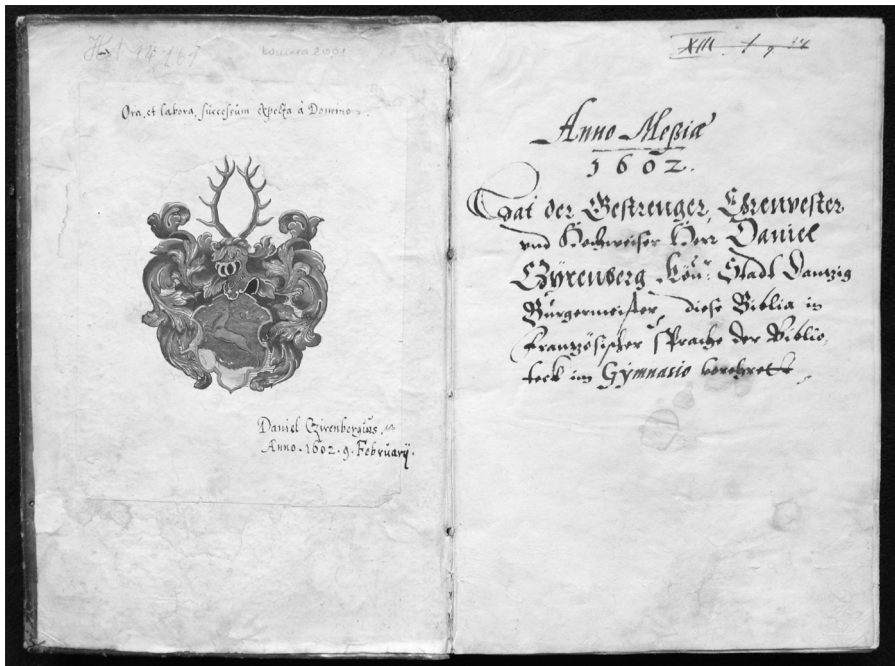 Ora, et labora, successum expecta à Domino.
Daniel Czirenbergius.
Anno. 1602. 9. Februarij.
XIII
Anno Meßiæ
1602.
Hat der Gestrenger, Ehrenvester
vnd Hochweiser Herr Daniel
Czÿrenberg Kön: Stadt Dantzig
Bürgermeister, diese Biblia in
Frantzösischer Sprache der Biblio,
teck im Gÿmnasio verehrett.